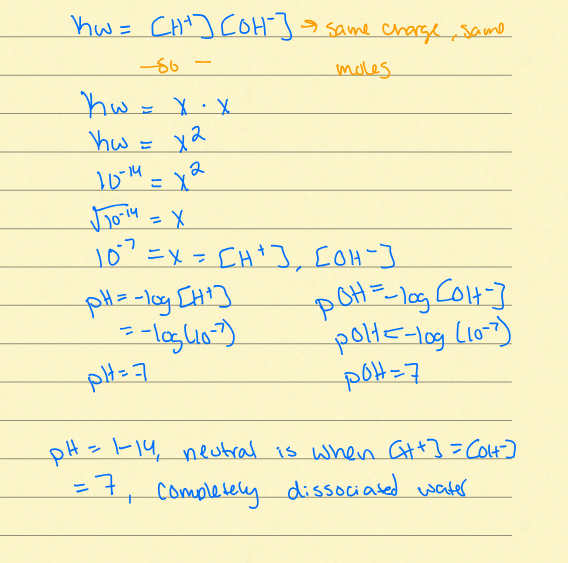 Kw = [H⁺][OH⁻] → same charge, same
—so — moles
Kw = x · x
Kw = x²
10⁻¹⁴ = x²
√10⁻¹⁴ = x
10⁻⁷ = x = [H⁺], [OH⁻]
pH = -log[H⁺] pOH = -log[OH⁻]
= -log(10⁻⁷) pOH = -log(10⁻⁷)
pH = 7 pOH = 7
pH = 1-14, neutral is when [H⁺] = [OH⁻]
= 7, completely dissociated water